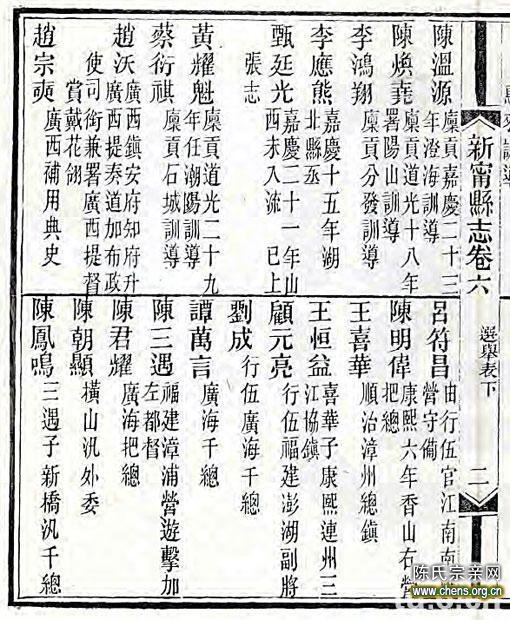 新甯縣志卷六
選舉表下
二
陳溫源
廩貢嘉慶二十三
年澄海訓導
陳煥堯
廩貢道光十八年
署陽山訓導
李鴻翔
廩貢分發訓導
李應熊
嘉慶十五年湖
北縣丞
甄廷光
嘉慶二十一年山
西未入流 已上
張志
黃耀魁
廩貢道光二十九
年任潮陽訓導
蔡衍祺
廩貢石城訓導
趙沃
廣西鎮安府知府升
廣西提奏道加布政
使司銜兼署廣西提督
賞戴花翎
趙宗奭
廣西補用典史
呂符昌
由行伍官江南南
營守備
陳明偉
康熙六年香山右營
把總
王喜華
順治漳州總鎮
王恒益
喜華子康熙連州三
江協鎮
顧元亮
行伍福建澎湖副將
劉成
行伍廣海千總
譚萬言
廣海千總
陳三遇
福建漳浦營遊擊加
左都督
陳君耀
廣海把總
陳朝顯
橫山汛外委
陳鳳鳴
三遇子新橋汛千總
陈氏宗亲网
www.chens.org.cn